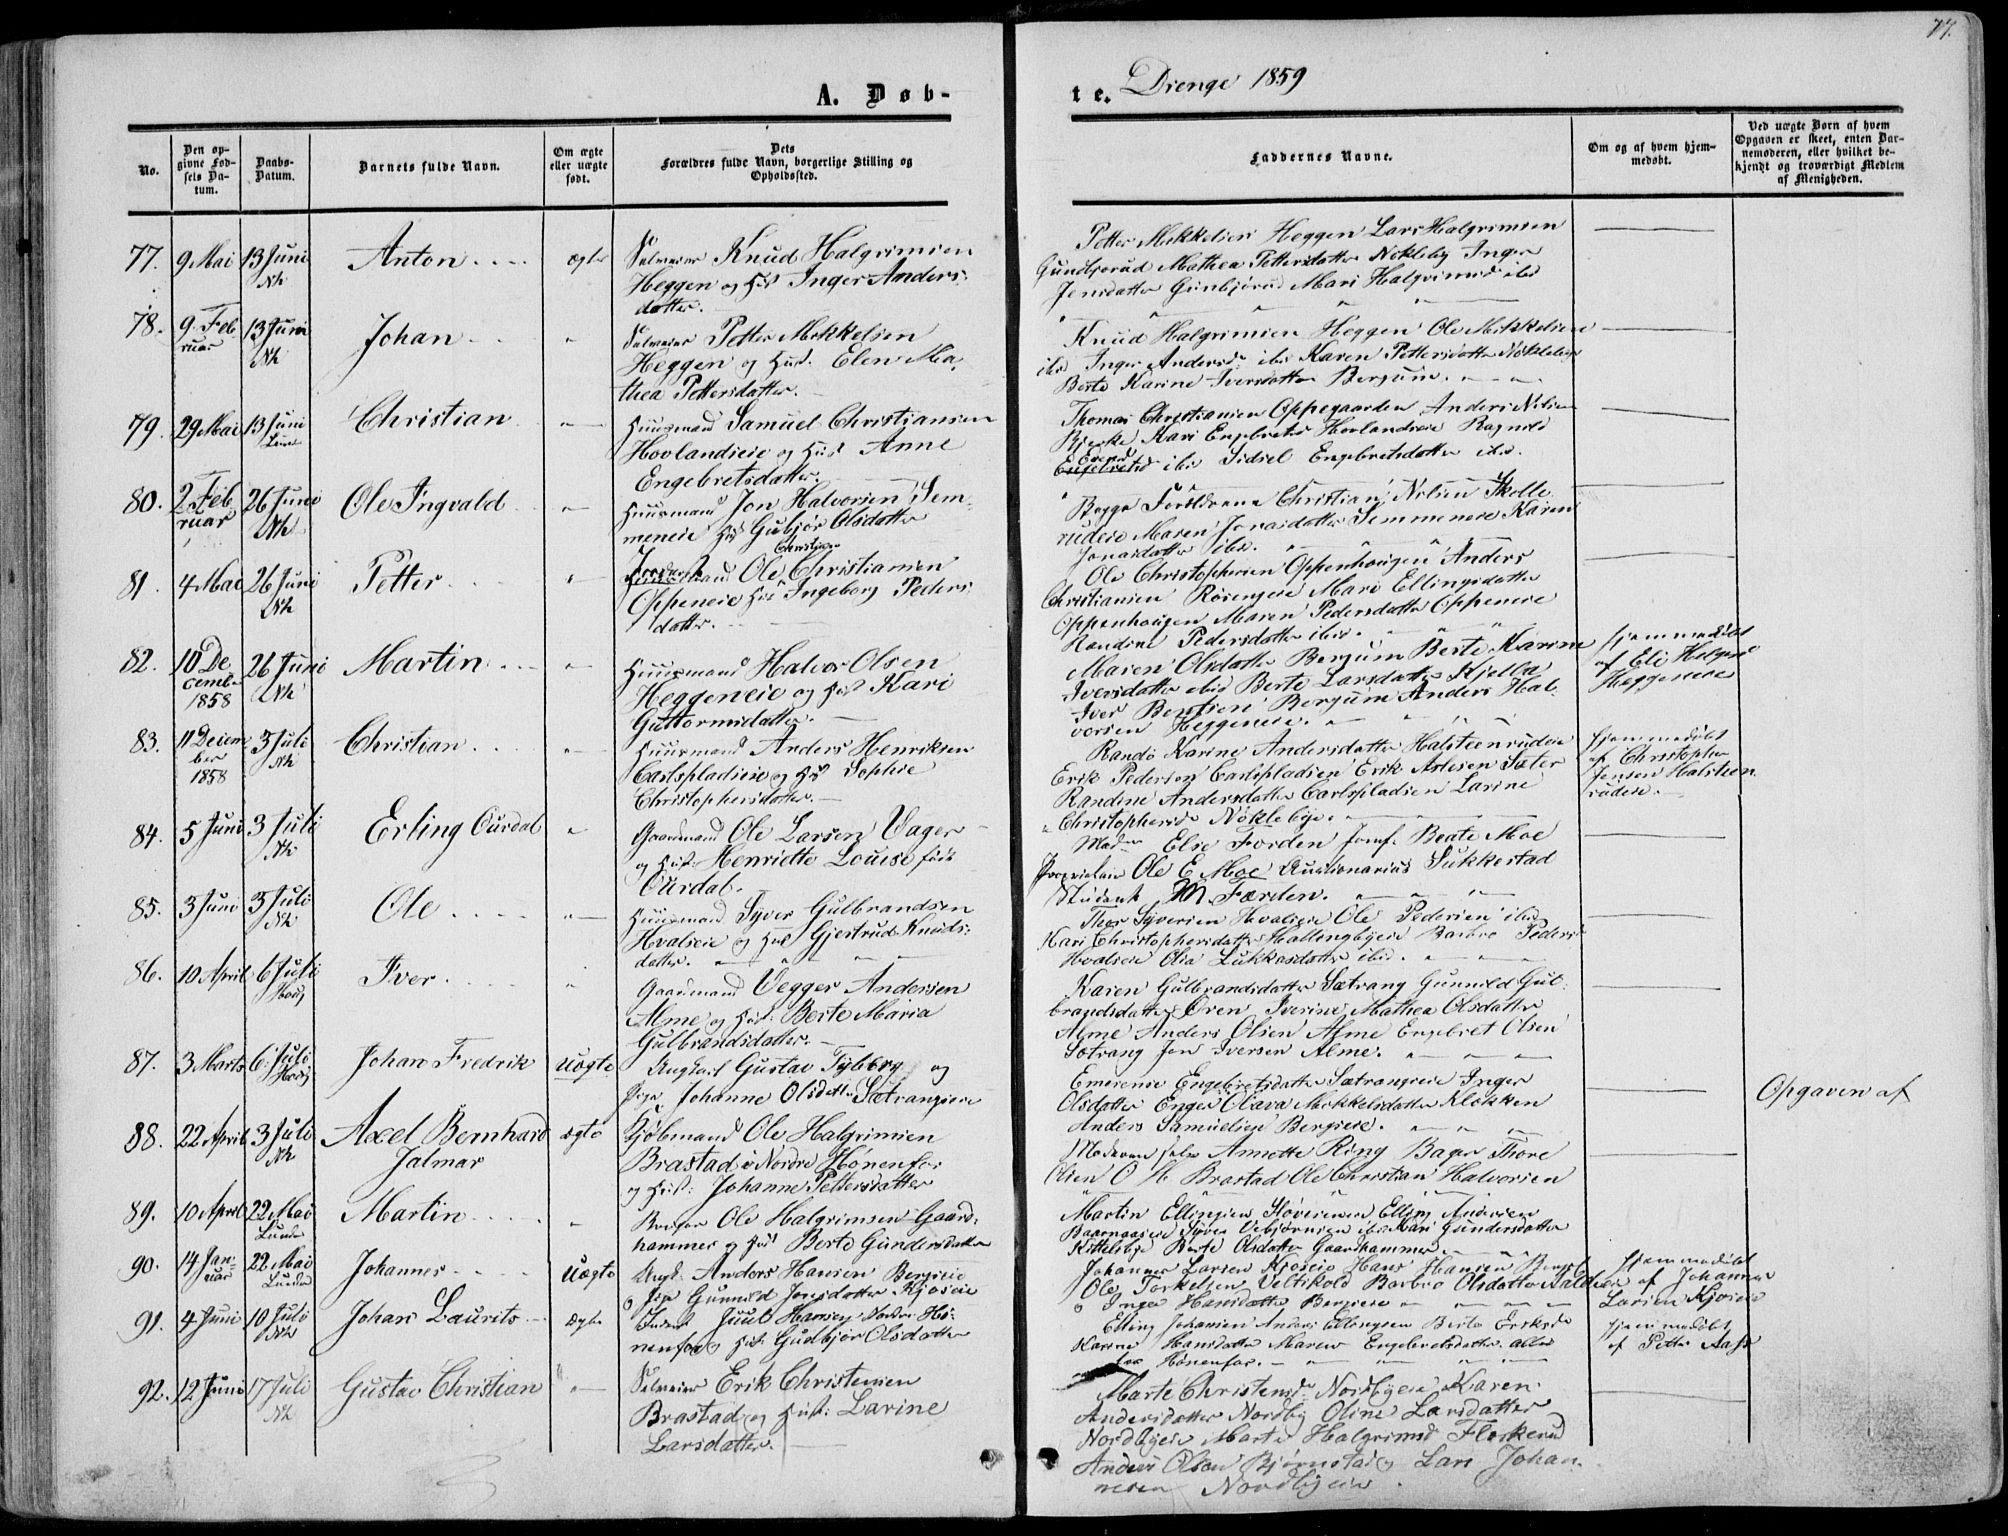 77.
A. Døb-
te. Drenge 1859
No.
Den op-
givne Fød-
sels Da-
tum.
Daabs-
Datum.
Barnets fulde Navn.
Om ægte
eller uægte
født.
Dets
Forældres fulde Navn, borgerlige Stilling og
Opholdssted.
Faddernes Navne.
Om og af hvem hjem-
medøbt.
Ved uægte Børn af hvem
Opgaven er skeet, enten Bar-
nemoderen, eller hvilket be-
kjendt og troværdigt Medlem
af Menigheden.
77. 9 Mai 13 Juni Anton ægte Knud Halgrimsen
Nh
Heggen og Hust Inger Anders-
datter.
Petter Mikkelsen Heggen Lars Halgrimsen
Gunbjørud Mathea Pettersdatter Nökleby Inger
Jensdatter Gunbjørud Mari Halgrimsd ibid
78. 9 Feb 13 Juni Johan Petter Mikkelsen
ruar Nh
Heggen og Hust. Elen Ma-
thea Pettersdatter.
Knud Halgrimsen Heggen Ole Mikkelsen
ibid Inger Andersd ibid Karen Pettersdatter Nökleby
Berte Karine Iversdatter Bergum.
79. 29 Mai 13 Juni Christian Huusmand Samuel Christiansen
Lunde
Hovlandseie og Hust Anne
Engebretsdatter.
Thomas Christiansen Oppegaarden Anders Nilsen
Bjerke Kari Engebretsd Hovlandseie Ragnild
ibid Sidsel Engebretsdatter ibid.
80. 2 Feb 26 Juni Ole Ingvald Huusmand Jon Halvorsen Sem-
ruar Nh
meneie Hust Gubjør Olsdatter
Begge Forældrene Christian Nilsen Skolle
rudeie Maren Jonasdatter Semmeneie Karen
Jonasdatter ibid.
81. 4 Mai 26 Juni Petter Ole Christiansen
Nh
Oppeneie Hust Ingeborg Peders
datter.
Ole Christophersen Oppenhougen Anders
Christiansen Røseneie Mari Ellingsdatter
Oppenhougen Maren Pedersdatter Oppeneie
Randine Pedersdatter ibid.
82. 10 De 26 Juni Martin Huusmand Halvor Olsen
cember Nh
1858
Heggeneie og Hust Kari
Guttormsdatter.
Maren Olsdatter Bergum Berte Karine
Iversdatter ibid Berte Larsdatter Kjella
Iver Bentsen Bergum Anders Hal-
vorsen Heggeneie.
Hjemmedøbt
af Eli Helgesd
Heggeneie
83. 11 Decem 3 Juli Christian Huusmand Anders Henriksen
ber Nh
1858
Carlspladseie og Hust Sophie
Christophersdatter.
Randi Karine Andersdatter Halsteenrudeie
Erik Pedersen Carlspladsen Erik Sæter
Randine Andersdatter Carlspladsen Larine
Christophersd Nøklebye.
Hjemmedøbt
af Christopher
Jensen Halsteen
rudeie.
84. 5 Juni 3 Juli Erling Ourdal Gaardmand Ole Larsen Vager
Nh
og Hust. Henriette Louise født
Ourdal.
Mad Else Forden Jomf. Beate Moe
Proprietair Ole E Moe Auctionarius Sukkestad
Student M. Færden.
85. 3 Juni 3 Juli Ole Huusmand Syver Gulbrandsen
Nh
Hvalseie og Hust Gjertrud Knuds-
datter.
Thor Syversen Hvalseie Ole Pedersen ibid
Kari Christophersdatter Hallingbyeie Barbro Pedersd
Hvalseie Olia Lukkasdatter ibid.
86. 10 April 6 Juli Iver Gaardmand Vegger Andersen
Alme og Hust. Berte Maria
Gulbrandsdatter.
Karen Gulbrandsdatter Sætrang Gunnild Gul-
brandsdatter Ören Iverine Mathea Olsdatter
Alme Anders Olsen Alme Engebret Olsen
Sætrang Jon Iversen Alme.
87. 3 Marts 6 Juli Johan Fredrik uægte Ungkarl Gustav Tyberg og
Pige Johanne Olsdatter Sætrangseie
Emerense Engebretsdatter Sætrangseie Inger
Olsdatter Enger Olava Mikkelsdatter Klokken
Anders Samuelsen Bergseie.
Opgaven af
88. 22 April 3 Juli Axel Bernhard ægte Kjöbmand Ole Halgrimsen
Nh
Jalmar
Brastad i Nordre Hönenfos
og Hust: Johanne Pettersdatter
Moderen selv Annette Ring Bager Thore
Olsen O H Brastad Ole Christian Halvorsen
89. 10 April 22 Mai Martin Ole Halgrimsen Gaard-
Lunde
hammer og Hust Berte Gundersdatter
Martin Ellingsen Elling Andersen
Syver Mari Gundersdatter
Kittelsbye Berte Olsdatter Gaardhammer
90. 14 Jan- 22 Mai Johannes Uægte Ungk: Anders Hansen Bergseie
uar Lunder
Pige Gunnild Jonsdatter Kjöseie
Johannes Larsen Kjöseie Hans Hansen
Ole Torkelsen Veltskold Barbro Olsdatter
Inger Hansdatter Bergseie
Hjemmedøbt
af Johannes
Larsen Kjöseie
91. 4 Juni 10 Juli Johan Laurits ægte Juul Hansen Söndre Hö-
Nh
nenfos og Hust: Gunbjör Olsdatter
Elling Johansen Anders Ellingsen Berte Eriksd
Karine Hansdatter Maren Engebretsdatter alle
Hönenfos.
Hjemmedøbt
af Petter Aass
92. 12 Juni 17 Juli Gustav Christian Erik Christensen
Nh
Brastad og Hust: Larine
Larsdatter.
Marte Christensd Nordbyeie Karen
Andersdatter Nordby Oline Larsdatter
Nordbyeie Marte Halgrimsd Flaskerud
Anders Olsen Bjørnstad Lars Johan-
nesen Nordbyeie.